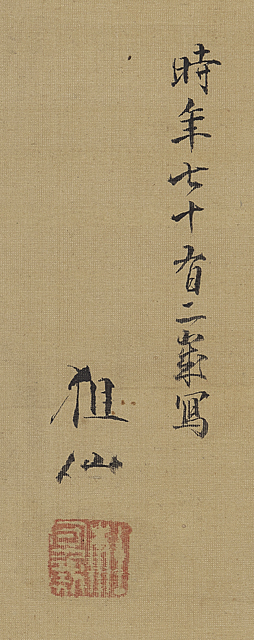 時年七十有二歳寫
狙仙